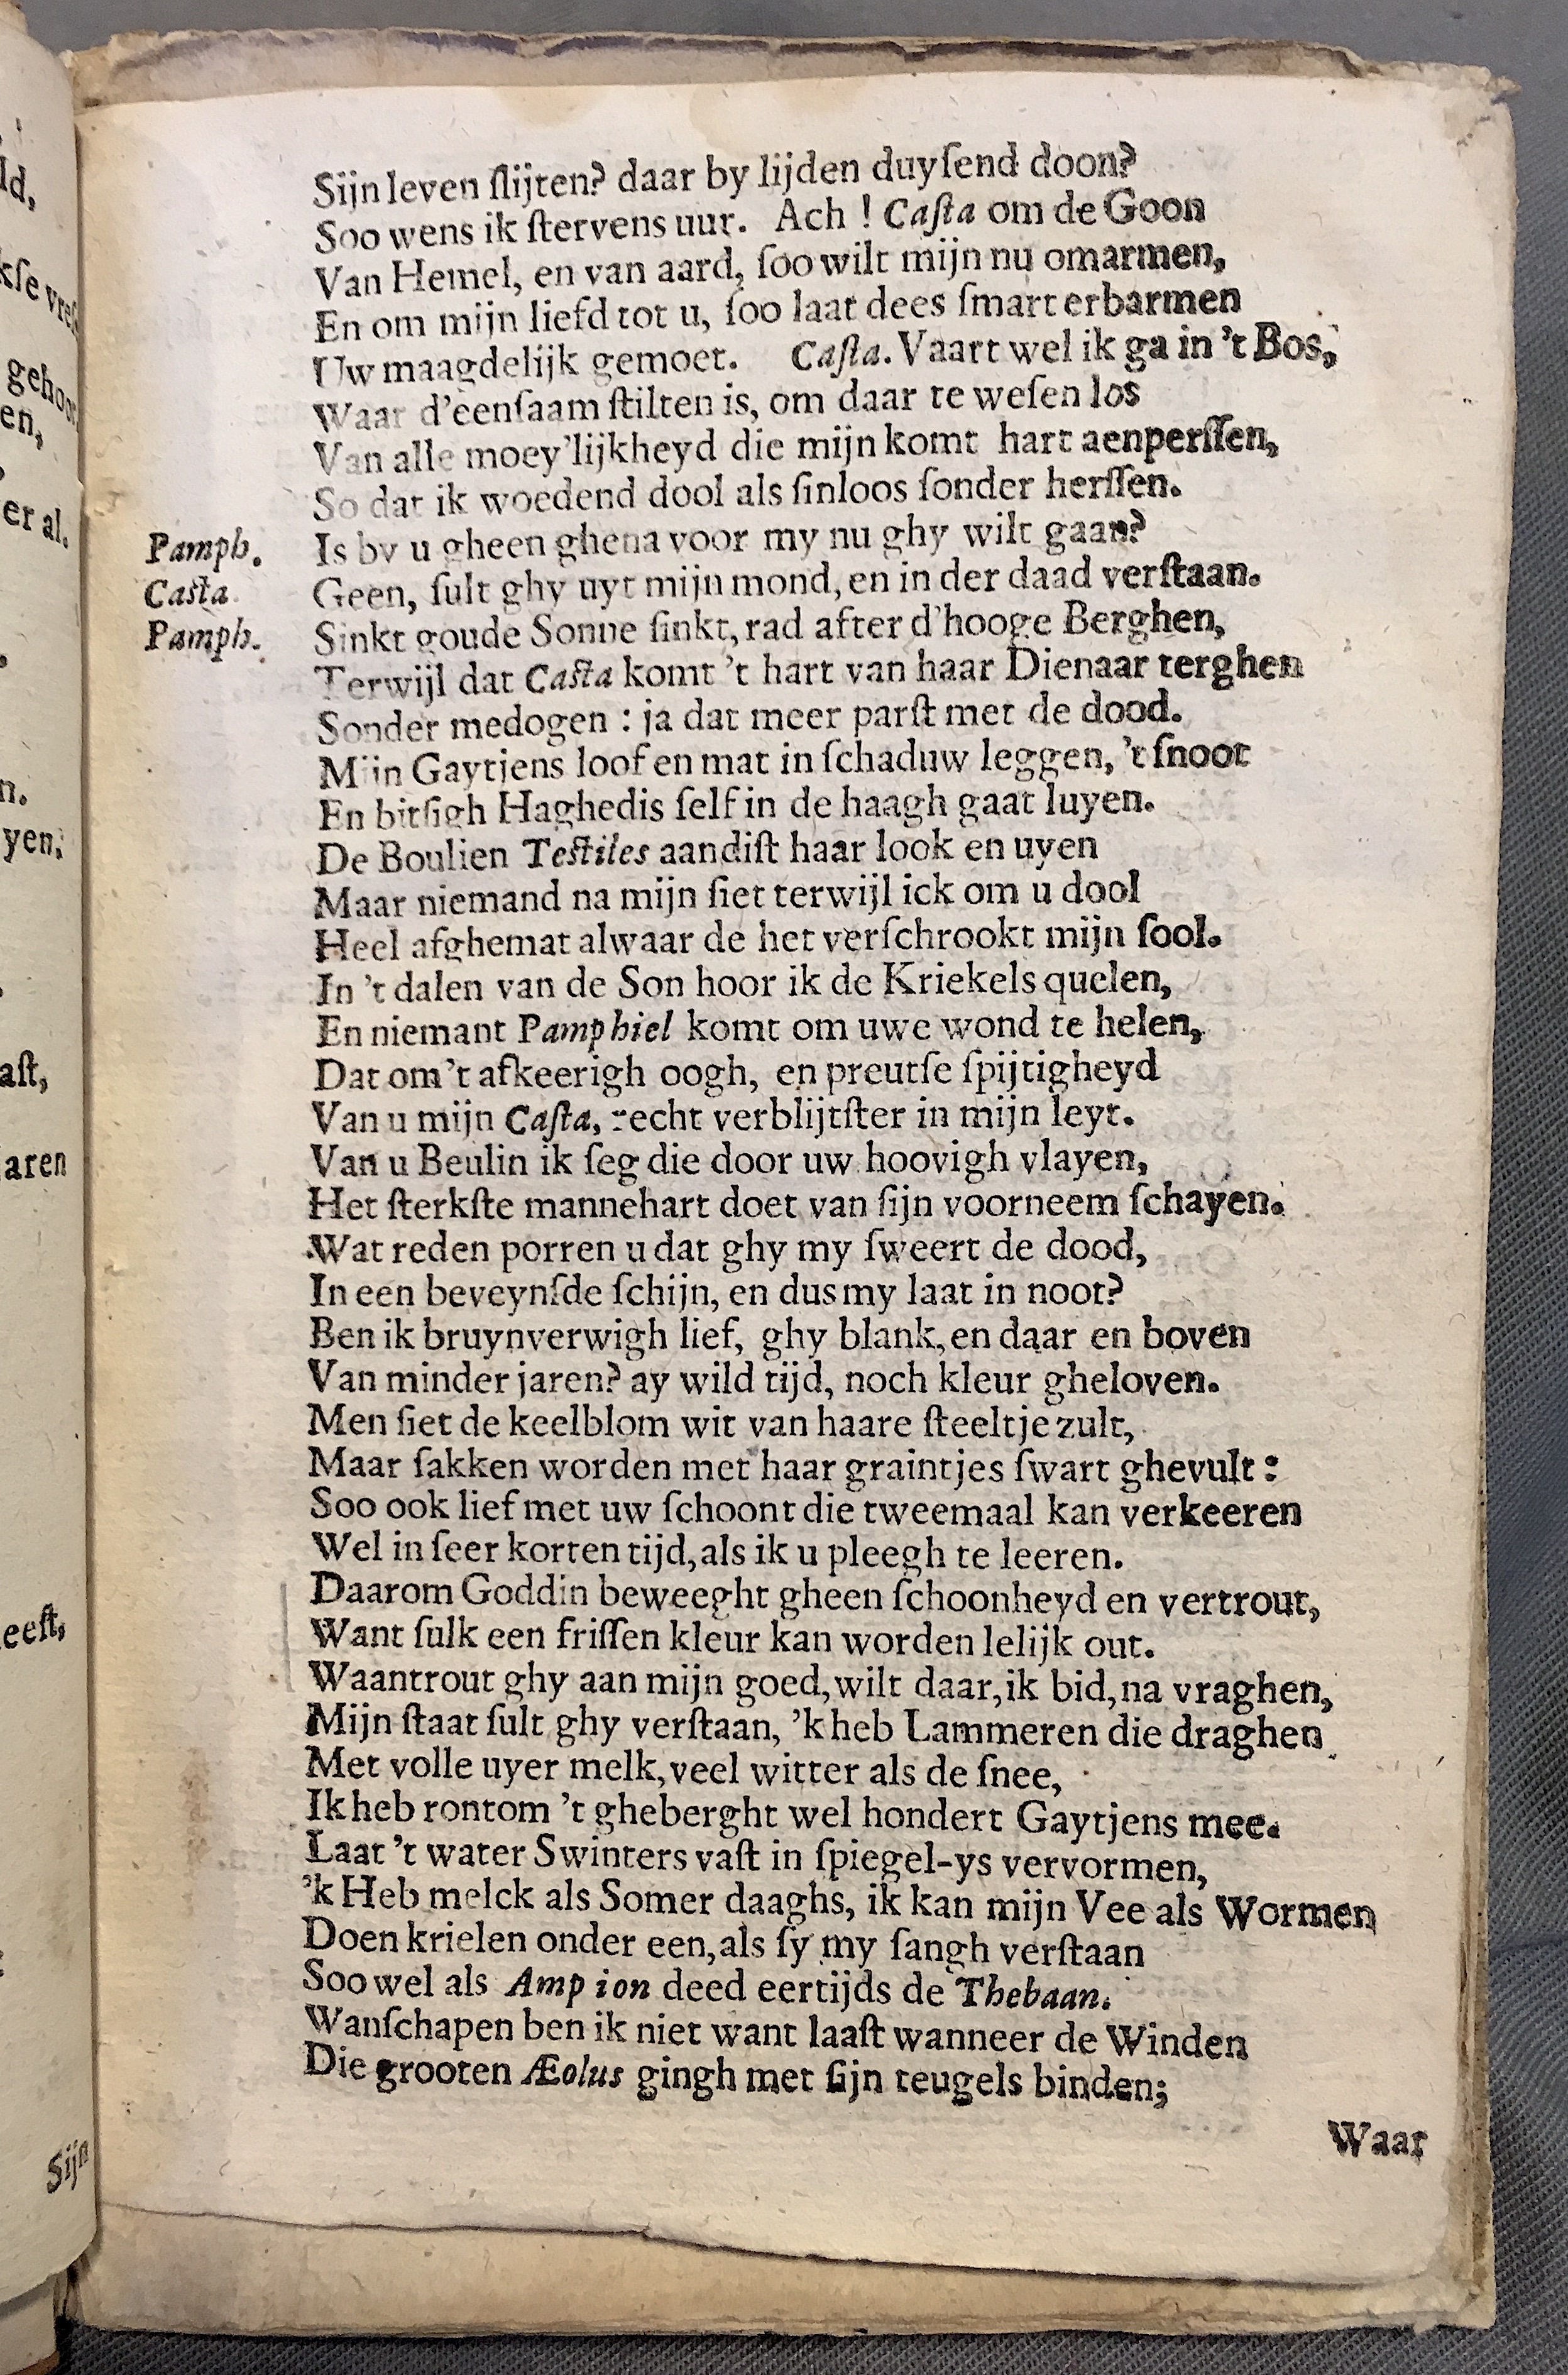 Sijn leven ſlijten? daar by lijden duyſend doon?
Soo wens ik ſtervens uur. Ach ! Caſta om de Goon
Van Hemel, en van aard, ſoo wilt mijn nu omarmen,
En om mijn liefd tot u, ſoo laat dees ſmart erbarmen
Uw maagdelijk gemoet. Caſta. Vaart wel ik ga in 't Bos,
Waar d'eenſaam ſtilten is, om daar te weſen los
Van alle moey'lijkheyd die mijn komt hart aenperſſen,
So dat ik woedend dool als ſinloos ſonder herſſen.
Pamph. Is by u gheen ghena voor my nu ghy wilt gaan?
Caſta. Geen, ſult ghy uyt mijn mond, en in der daad verſtaan.
Pamph. Sinkt goude Sonne ſinkt, rad after d'hooge Berghen,
Terwijl dat Caſta komt 't hart van haar Dienaar terghen
Sonder medogen : ja dat meer parſt met de dood.
Mijn Gaytjens loof en mat in ſchaduw leggen, 't ſnoot
En bitſigh Haghedis ſelf in de haagh gaat luyen.
De Boulien Teſtiles aandiſt haar look en uyen
Maar niemand na mijn ſiet terwijl ick om u dool
Heel afghemat alwaar de het verſchrookt mijn ſool.
In 't dalen van de Son hoor ik de Kriekels quelen,
En niemant Pamphiel komt om uwe wond te helen,
Dat om 't afkeerigh oogh, en preutſe ſpijtigheyd
Van u mijn Caſta, recht verblijtſter in mijn leyt.
Van u Beulin ik ſeg die door uw hoovigh vlayen,
Het ſterkſte mannehart doet van ſijn voorneem ſchayen.
Wat reden porren u dat ghy my ſweert de dood,
In een beveynſde ſchijn, en dus my laat in noot?
Ben ik bruynverwigh lief, ghy blank, en daar en boven
Van minder jaren? ay wild tijd, noch kleur gheloven.
Men ſiet de keelblom wit van haare ſteeltje zult,
Maar ſakken worden met haar graintjes ſwart ghevult :
Soo ook lief met uw ſchoont die tweemaal kan verkeeren
Wel in ſeer korten tijd, als ik u pleegh te leeren.
Daarom Goddin beweeght gheen ſchoonheyd en vertrout,
Want ſulk een friſſen kleur kan worden lelijk out.
Waantrout ghy aan mijn goed, wilt daar, ik bid, na vraghen,
Mijn ſtaat ſult ghy verſtaan, 'k heb Lammeren die draghen
Met volle uyer melk, veel witter als de ſnee,
Ik heb rontom 't gheberght wel hondert Gaytjens mee.
Laat 't water Swinters vaſt in ſpiegel-ys vervormen,
'k Heb melck als Somer daaghs, ik kan mijn Vee als Wormen
Doen krielen onder een, als ſy my ſangh verſtaan
Soo wel als Amp ion deed eertijds de Thebaan.
Wanſchapen ben ik niet want laaſt wanneer de Winden
Die grooten Æolus gingh met ſijn teugels binden;
Waar